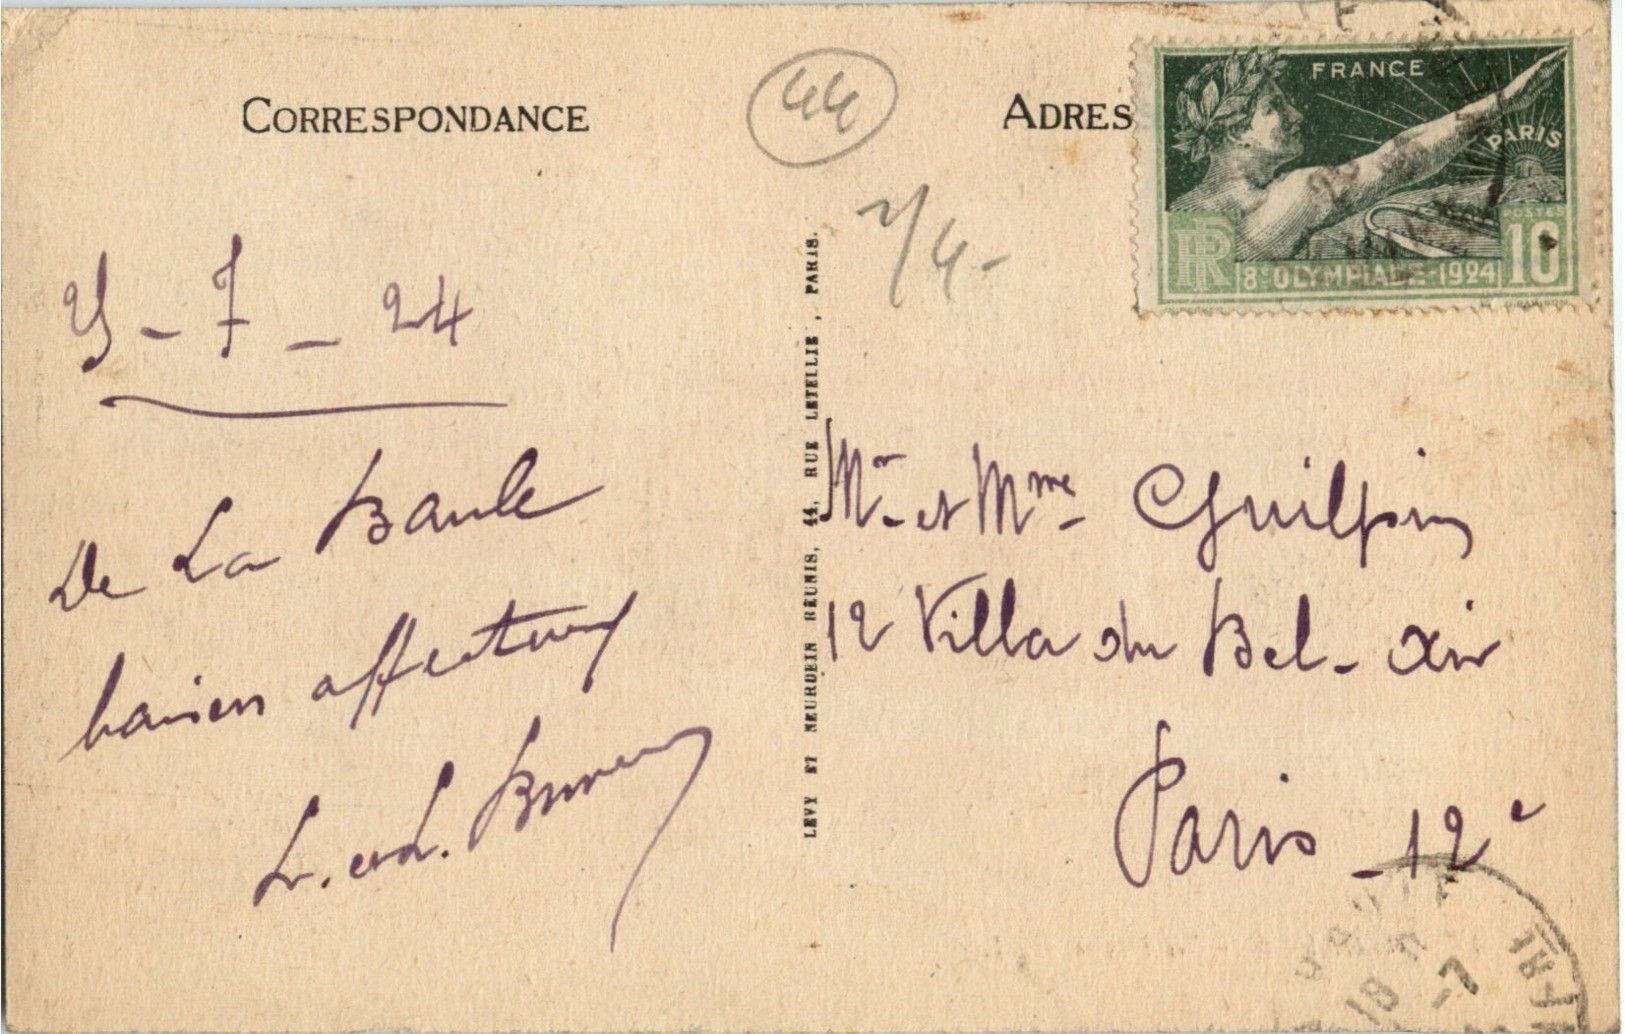 CORRESPONDANCE
44
ADRES
FRANCE
PARIS
POSTES
RF
8e OLYMPIADE-1924
10
-7-24
De La Baule
baisers affectueux
L. et L.
LEVY ET NEURDEIN RÉUNIS, 44, RUE LETELLIE, PARIS.
Mr et Mme Guilpin
12 Villa du Bel-air
Paris-12e
18
-7